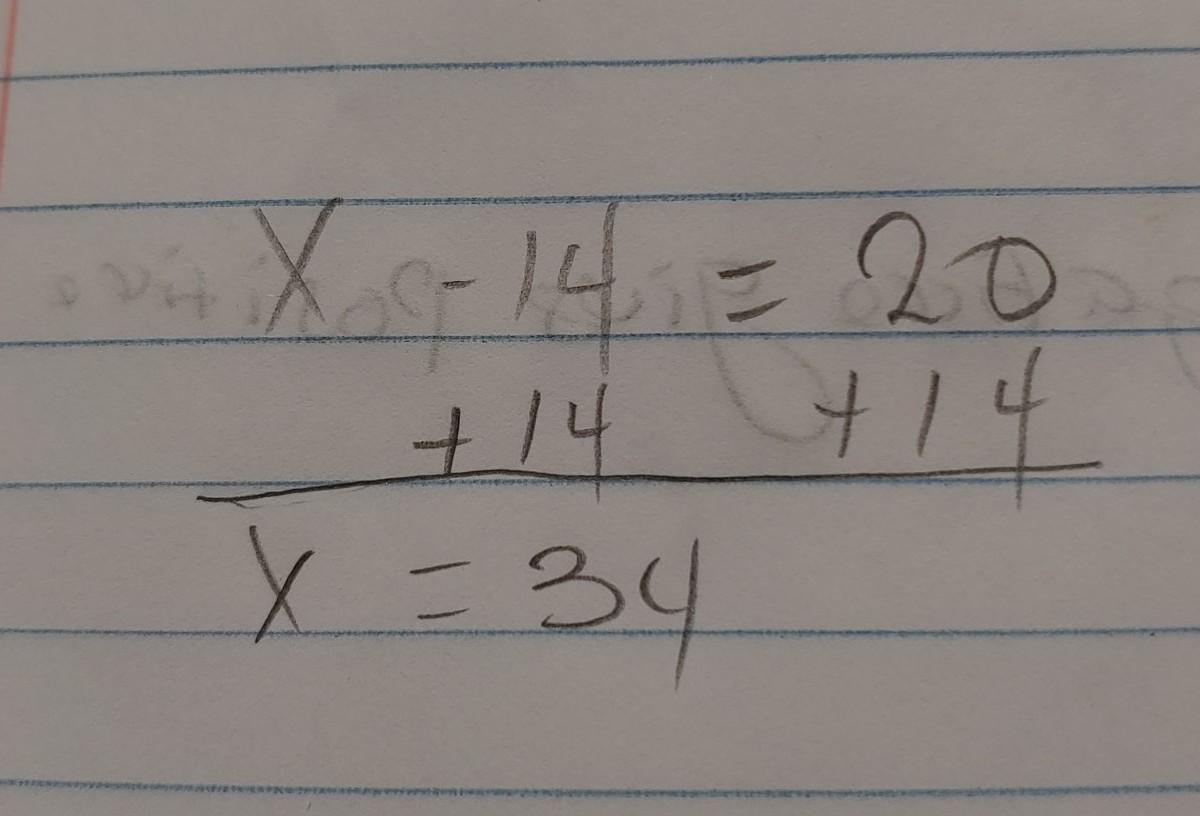 X - 14 = 20
+ 14 + 14
X = 34